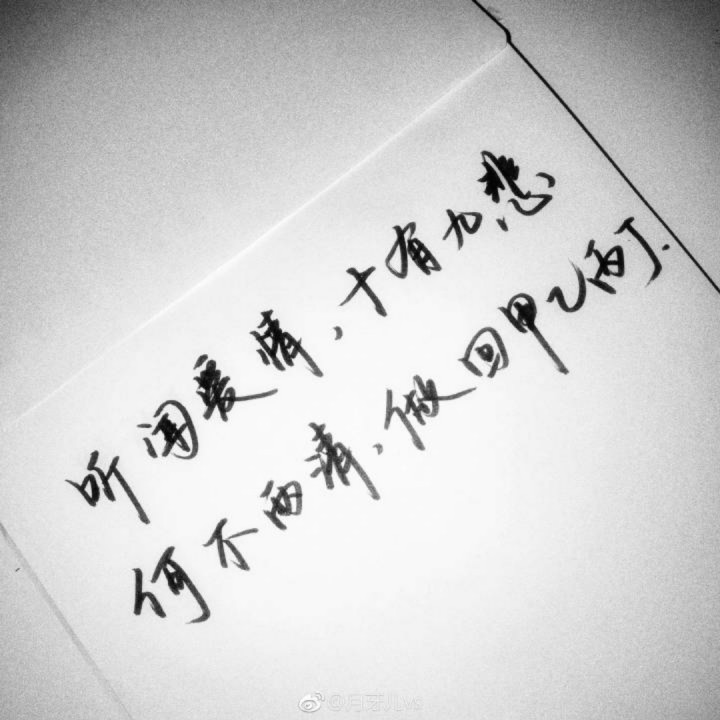 听闻爱情,十有九悲
何不两清,做回甲乙丙丁.
@月牙儿vs